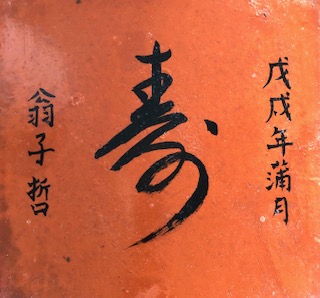 戊戌年蒲月
寿
翁子哲